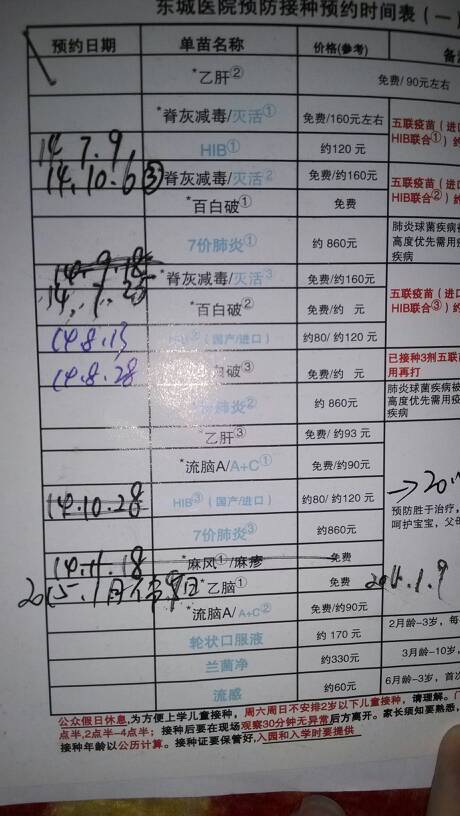 东城医院预防接种预约时间表（一）
预约日期 单苗名称 价格(参考)
*乙肝② 免费/90元左右
*脊灰减毒/灭活① 免费/160元左右 五联疫苗（进口
14.7.9 HIB① 约120 元 HIB联合①）约
14.10.6 ③ *脊灰减毒/灭活② 免费/约160元 五联疫苗（进口
*百白破① 免费 HIB联合②）约
7价肺炎① 约 860元 肺炎球菌疾病被
高度优先需用疫
疾病
14.9.18 *脊灰减毒/灭活③ 免费/约160元
14.7.25 *百白破② 免费/约 元 五联疫苗（进口
HIB联合③）约
14.8.13 （国产/进口） 约80/ 约120 元
14.8.28 白破③ 免费/约 元 已接种3剂五联
用再打
肺炎② 约 860元 肺炎球菌疾病被
高度优先需用疫
疾病
*乙肝③ 免费/约93 元
*流脑A/A+C① 免费/约90元
14.10.28 HIB③（国产/进口） 约80/ 约120 元
预防胜于治疗，
7价肺炎③ 约860元 呵护宝宝，父母
14.11.18 *麻风①/麻疹 免费
2015.1月 *乙脑① 免费 2015.1.9
*流脑A/A+C② 免费/约90元
轮状口服液 约 170 元 2月龄-3岁，每
兰菌净 约330元 3月龄-10岁，
流感 约60元 6月龄-3岁，首次
公众假日休息,为方便上学儿童接种，周六周日不安排2岁以下儿童接种，请理解。门
点半,2点半-4点半；接种后要在现场观察30分钟无异常后方离开。家长须知要熟悉，
接种年龄以公历计算。接种证要保管好,入园和入学时要提供